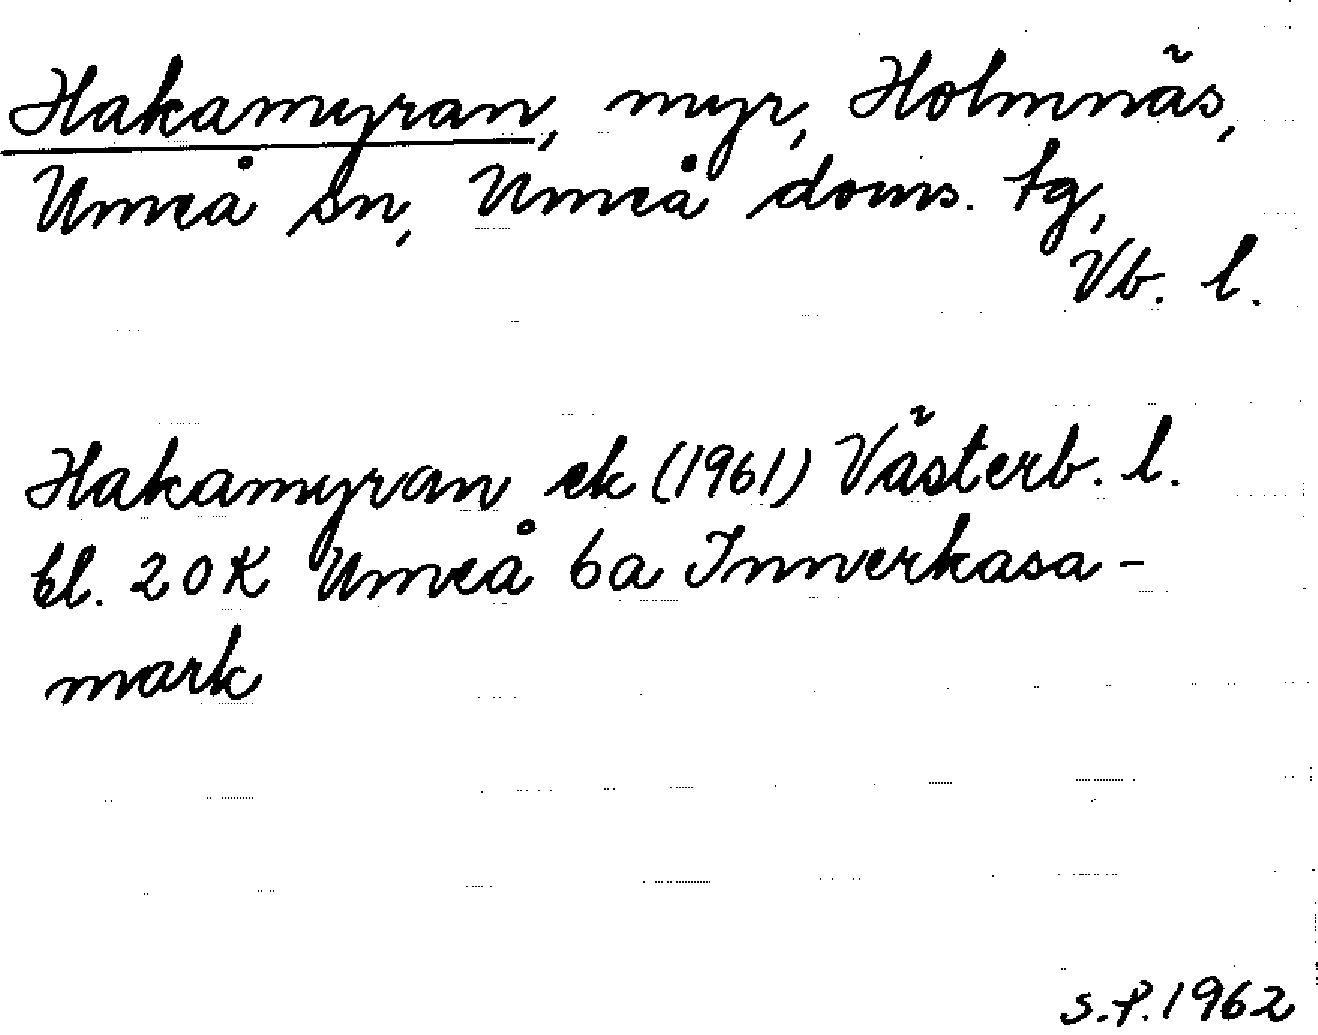 Hakamyran, myr, Holmnäs,
Umeå sn, Umeå doms. tg,
Vb. l.
Hakamyran ek (1961) Västerb. l.
bl. 20 K Umeå 6a Innerkasa-
mark
S.P. 1962